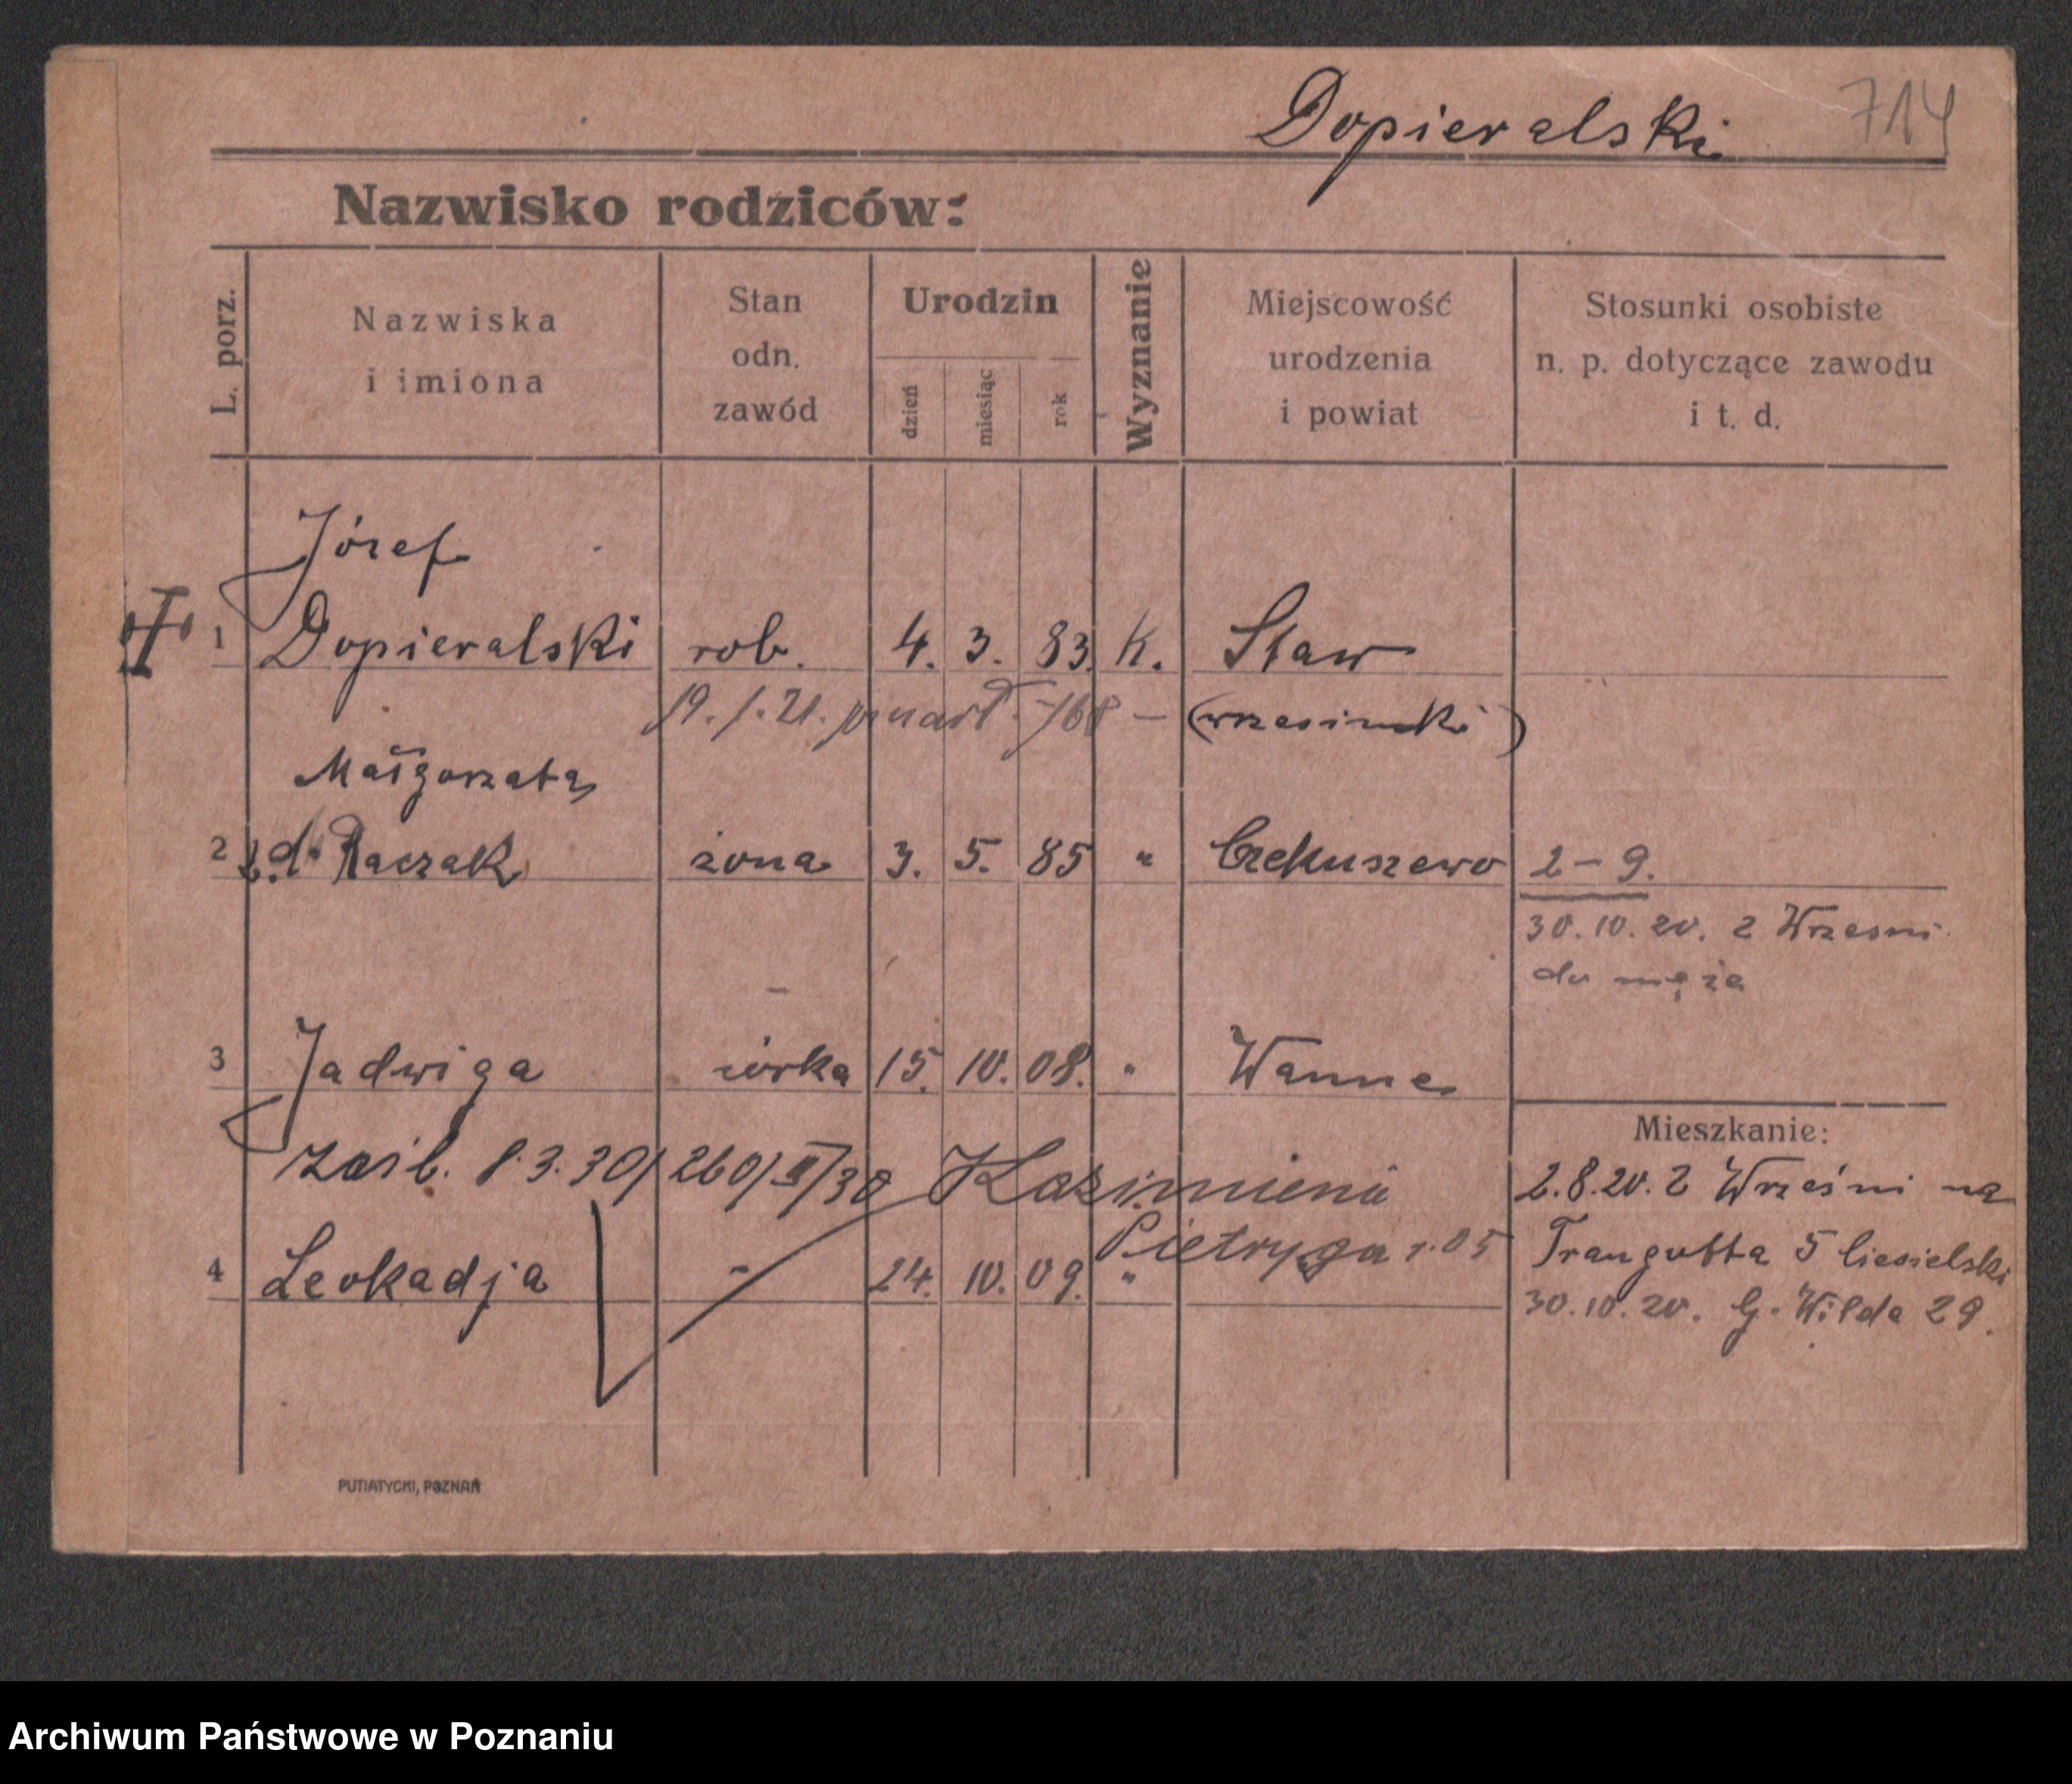 Dopieralski 714
Nazwisko rodziców:
L. porz.
Nazwiska
i imiona
Stan
odn.
zawód
Urodzin
dzień
miesiąc
rok
Wyznanie
Miejscowość
urodzenia
i powiat
Stosunki osobiste
n. p. dotyczące zawodu
i t. d.
Józef
1 Dopieralski rob. 4. 3. 83. K. Staw
19. 1. 21. zmarł (wrzesiński)
Małgorzata
2 Raczak żona 3. 5. 85 " Czekuszewo 2-9.
30.10.20. z Wrzesni
do męża
3 Jadwiga córka 15. 10. 08. " Wanne
Mieszkanie:
zaśl. 8.3.30/260/III/30 Kazimierz
Pietryga r.05
2.8.20. z Wrześni na
Traugutta 5 Ciesielski
4 Leokadja " 24. 10. 09. "
30.10.20. G. Wilda 29.
PUTIATYCKI, POZNAŃ
Archiwum Państwowe w Poznaniu